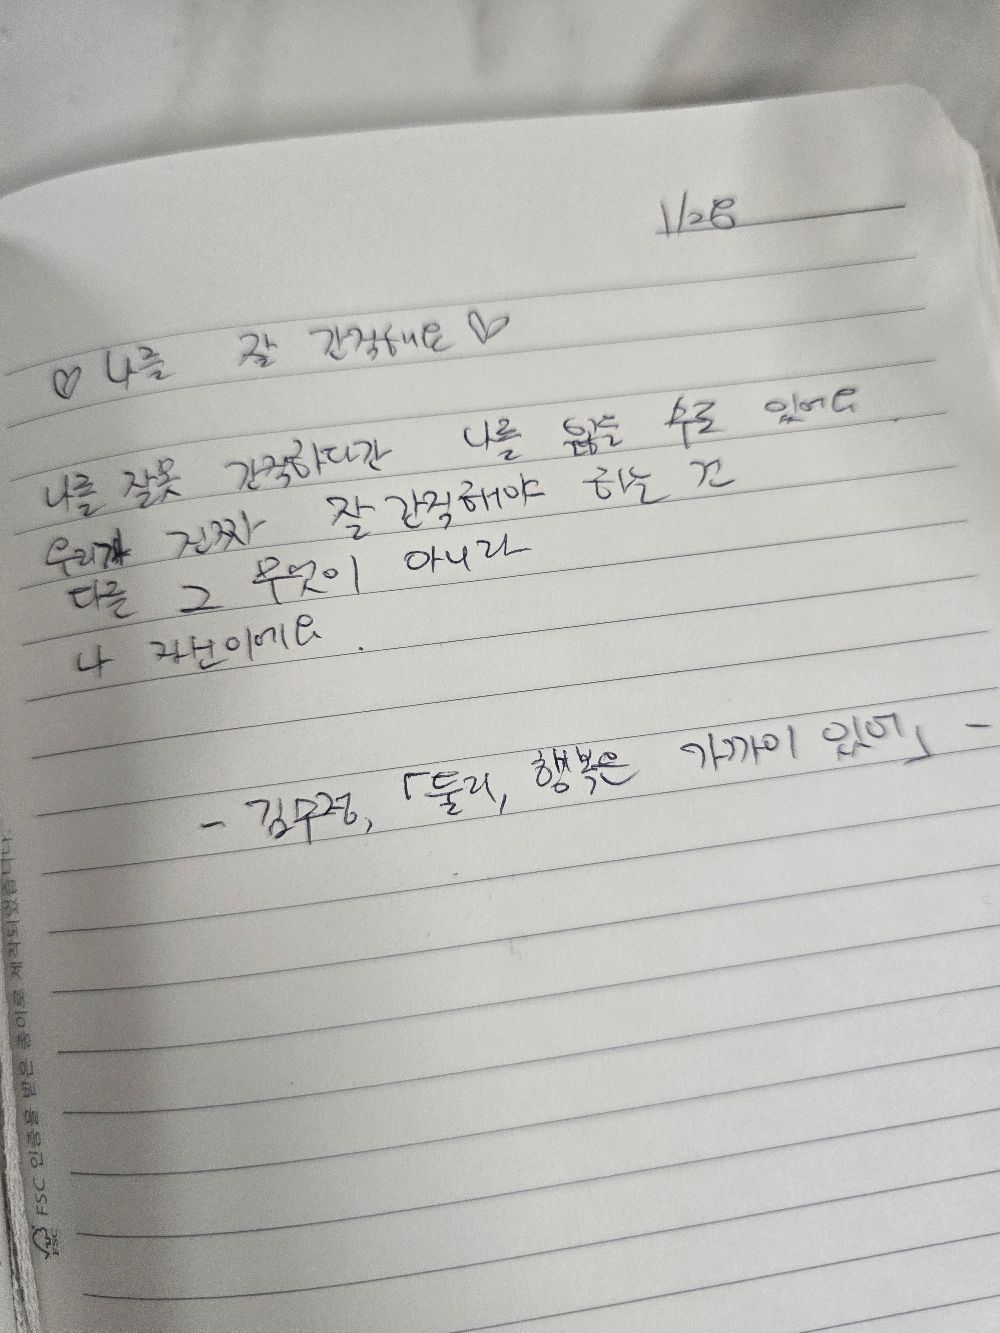 1/28
♡ 나를 잘 간직해요 ♡
나를 잘못 간직하다간 나를 잃을 수도 있어요.
우리가 진짜 잘 간직해야 하는 건
다른 그 무엇이 아니라
나 자신이에요.
- 김수정, 「둘리, 행복은 가까이 있어」 -
FSC 인증을 받은 종이로 제작되었습니다
FSC